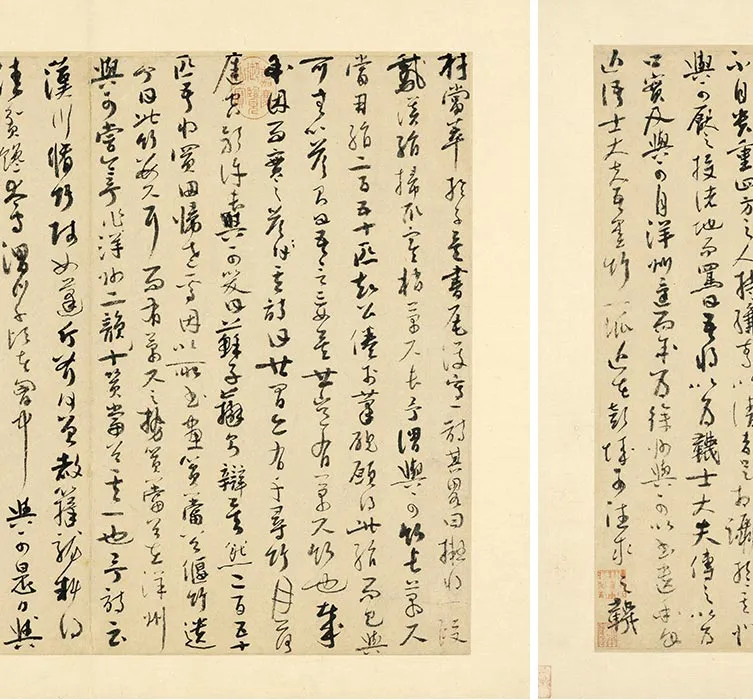 不自貴重四方之人持縑素以請者足相躡於其門
與可厭之投諸地而罵曰吾將以為韈士大夫傳之以為
口實及與可自洋州還而余為徐州與可以書遺余曰
近語士大夫吾墨竹一派近在彭城可往求之韈
材當萃於子矣書尾復寫一詩其畧曰擬將一段
鵝溪絹掃取寒梢萬尺長予謂與可竹長萬尺
當用絹二百五十匹知公倦於筆硯願得此絹而已與
可無以答則曰吾言妄矣世豈有萬尺竹也哉
余因而實之答其詩曰世間亦有千尋竹月落
庭空影許長與可笑曰蘇子辯則辯矣然二百五十
匹吾將買田歸老焉因以所畫篔簹谷偃竹遺
予曰此竹數尺耳而有萬尺之勢篔簹谷在洋州
與可嘗令予作洋州 篔簹谷其一也予詩云
漢川脩竹賤如蓬斤斧何曾赦籜龍料得
清貧饞太守渭川千畝在胸中 與可是日與